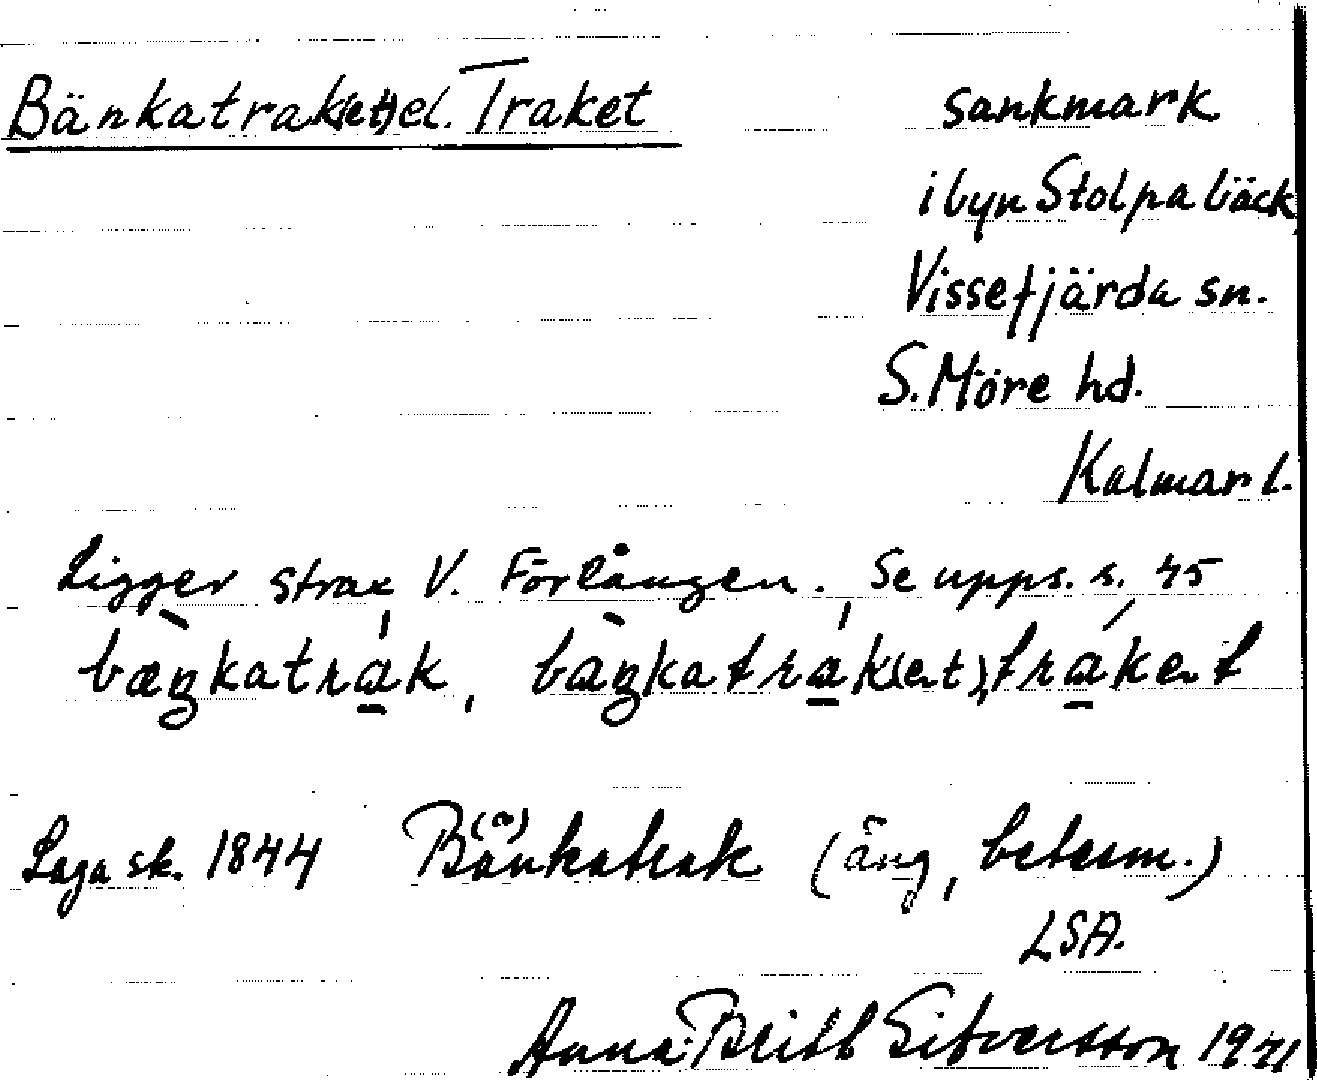 Bänkatrak(et) el. Traket sankmark
i byn Stolpabäck,
Vissefjärda sn.
S. Möre hd.
Kalmar l.
Ligger strax V. Förlången. Se upps. s. 45
bæŋkatrak, baŋkatrak(et), traket
Laga sk. 1844 Bänkatrak (äng, betesm.)
LSA.
Anna-Britt 1941